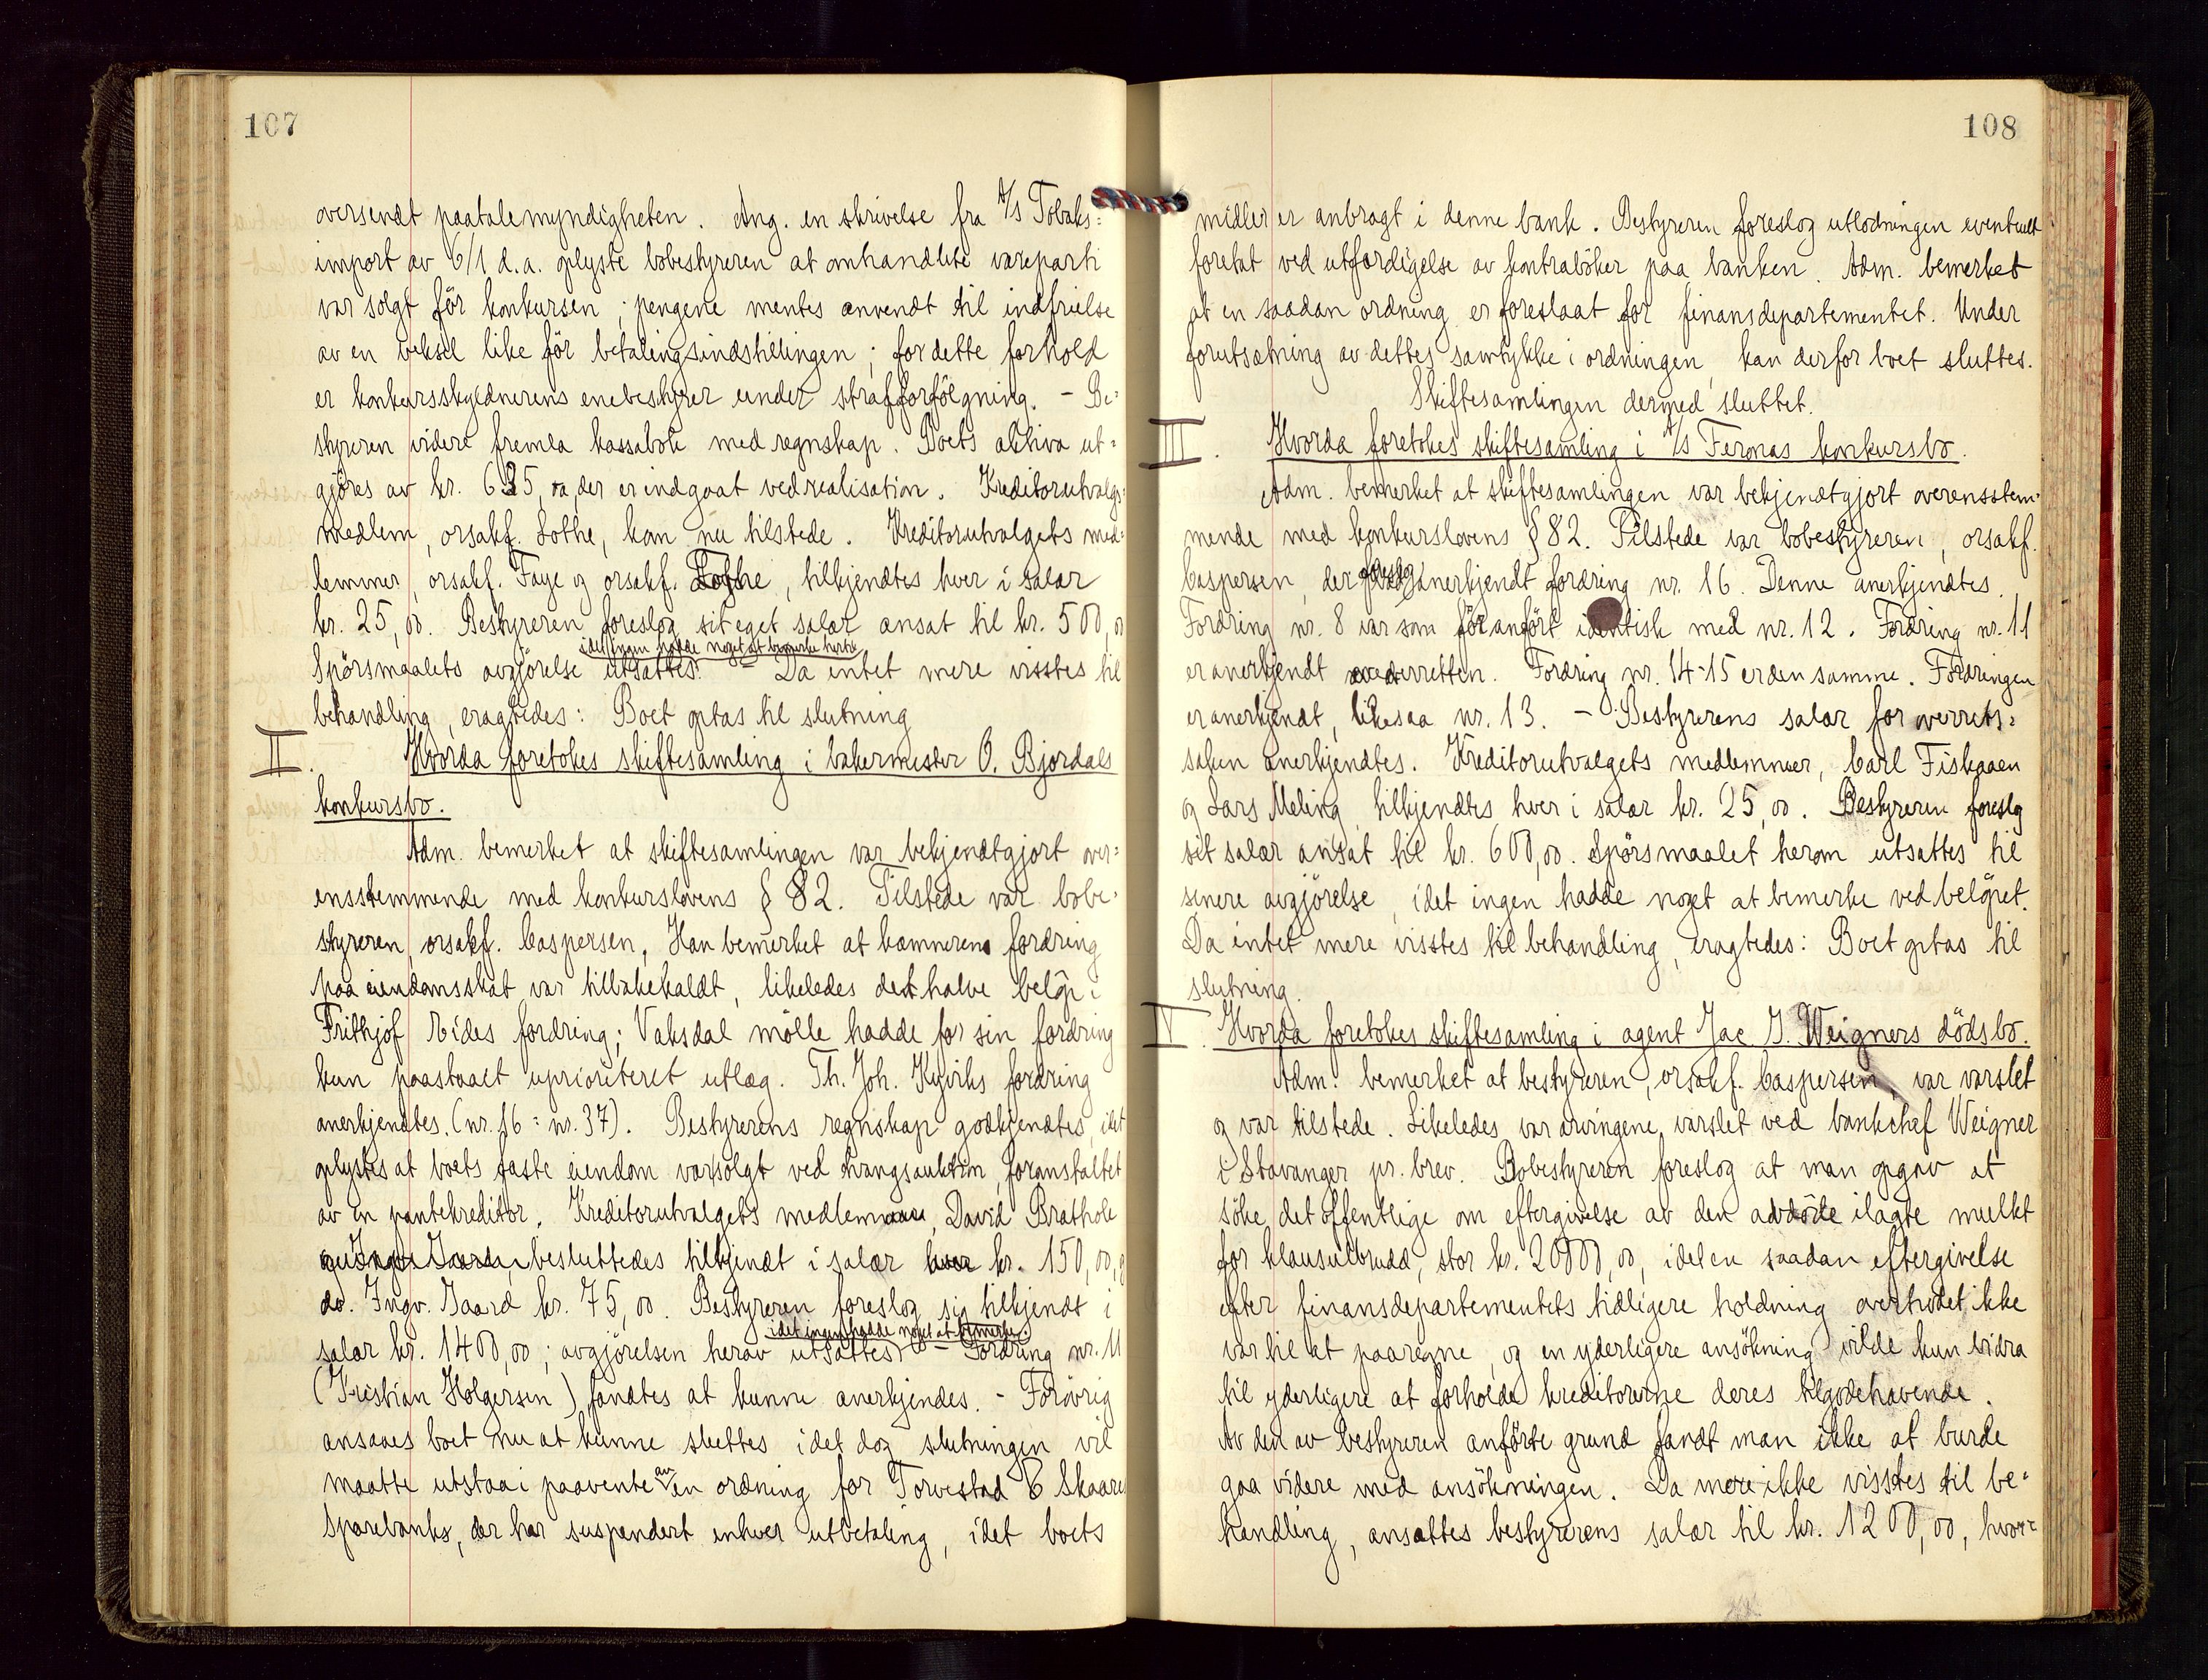 107
oversendt paatalemyndigheten. Ang. en skrivelse fra A/S Tobaks=
import av 6/1 d.a. oplyste bobestyreren at omhandlete vareparti
var solgt för konkursen; pengene mentes anvendt til indfrielse
av en veksel like för betalingsindstillingen; for dette forhold
er konkursskyldnerens enebestyrer under strafforfölgning. - Be=
styreren videre fremla kassabok med regnskap. Boets aktiva ut=
gjöres av kr. 635,00, der er indgaat ved realisation. Kreditorutvalgs=
medlem, orsakf. Lothe, kom nu tilstede. Kreditorutvalgets med=
lemmer, orsakf. Faye og orsakf. Lothe, tilkjendtes hver i salær
kr. 25,00. Bestyreren foreslog sit eget salær ansat til kr. 500,00
idet ingen hadde noget at bemerke hertil
Spörsmaalets avgjörelse utsattes. - Da intet mere visstes til
behandling, eragtedes: Boet optas til slutning
II. Hvorda foretokes skiftesamling i bakermester O. Bjordals
konkursbo.
Adm. bemerket at skiftesamlingen var bekjendtgjort over=
ensstemmende med konkurslovens § 82. Tilstede var bobe=
styreren, orsakf. Caspersen. Han bemerket at kæmnerens fordring
paa eiendomsskat var tilbakekaldt, likeledes det halve belöp i
Frithjof Eides fordring; Vaksdal mölle hadde for sin fordring
kun paastaaet uprioritert utlæg. Th. Joh. Kyviks fordring
anerkjendtes. (nr. 16 = nr. 37). Bestyrerens regnskap godkjendtes, idet
oplystes at boets faste eiendom var solgt ved tvangsauktion, foranstaltet
av en pantekreditor. Kreditorutvalgets medlem, David Brathole
besluttedes tilkjendt i salær kr. 150,00, og
do. Ingv. Gaard kr. 75,00. Bestyreren foreslog sig tilkjendt i
idet ingen hadde noget at bemerke.
salær kr. 1400,00; avgjörelsen herav utsattes - Fordring nr. 11
(Kristian Holgersen) fandtes at kunne anerkjendes. - Forövrig
ansaaes boet nu at kunne sluttes idet dog slutningen vil
maatte utstaa i paavente av en ordning for Torvestad & Skaare
Sparebank, der har suspendert enhver utbetaling, idet boets
108
midler er anbragt i denne bank. Bestyreren foreslog utlodningen eventuelt
foretat ved utfærdigelse av kontraböker paa banken. Adm. bemerket
at en saadan ordning er foreslaat for finansdepartementet. Under
forutsætning av dettes samtykke i ordningen kan derfor boet sluttes.
Skiftesamlingen dermed sluttet.
III. Hvorda foretokes skiftesamling i A/S Fermas konkursbo.
Adm. bemerket at skiftesamlingen var bekjendtgjort overensstem=
mende med konkurslovens § 82. Tilstede var bobestyreren, orsakf.
Caspersen, der foreslog anerkjendt fordring nr. 16. Denne anerkjendtes.
Fordring nr. 8 var som för anfört identisk med nr. 12. Fordring nr. 11
er anerkjendt av overretten. Fordring nr. 14-15 er den samme. Fordringen
er anerkjendt, likesaa nr. 13. - Bestyrerens salær for overrets=
saken anerkjendtes. Kreditorutvalgets medlemmer, Carl Fiskaaen
og Lars Meling, tilkjendtes hver i salær kr. 25,00. Bestyreren foreslog
sit salær ansat til kr. 600,00. Spörsmaalet herom utsattes til
senere avgjörelse, idet ingen hadde noget at bemerke ved belöpet.
Da intet mere visstes til behandling, eragtedes: Boet optas til
slutning.
IV. Hvorda foretokes skiftesamling i agent Jac J. Weigners dödsbo.
Adm. bemerket at bestyreren, orsakf. Caspersen, var varslet
og var tilstede. Likeledes var arvingene varslet ved bankchef Weigner
i Stavanger pr. brev. Bobestyreren foreslog at man opgav at
söke det offentlige om eftergivelse av den avdöde ilagte mulkt
for klausulbrudd, stor kr. 20000,00, idet en saadan eftergivelse
efter finansdepartementets tidligere holdning overhodet ikke
var til at paaregne, og en yderligere ansökning vilde kun bidra
til yderligere at forholde kreditorerne deres tilgodehavende.
Av den av bestyreren anförte grund fandt man ikke at burde
gaa videre med ansökningen. Da mere ikke visstes til be=
handling, ansattes bestyrerens salær til kr. 1200,00, hvor=